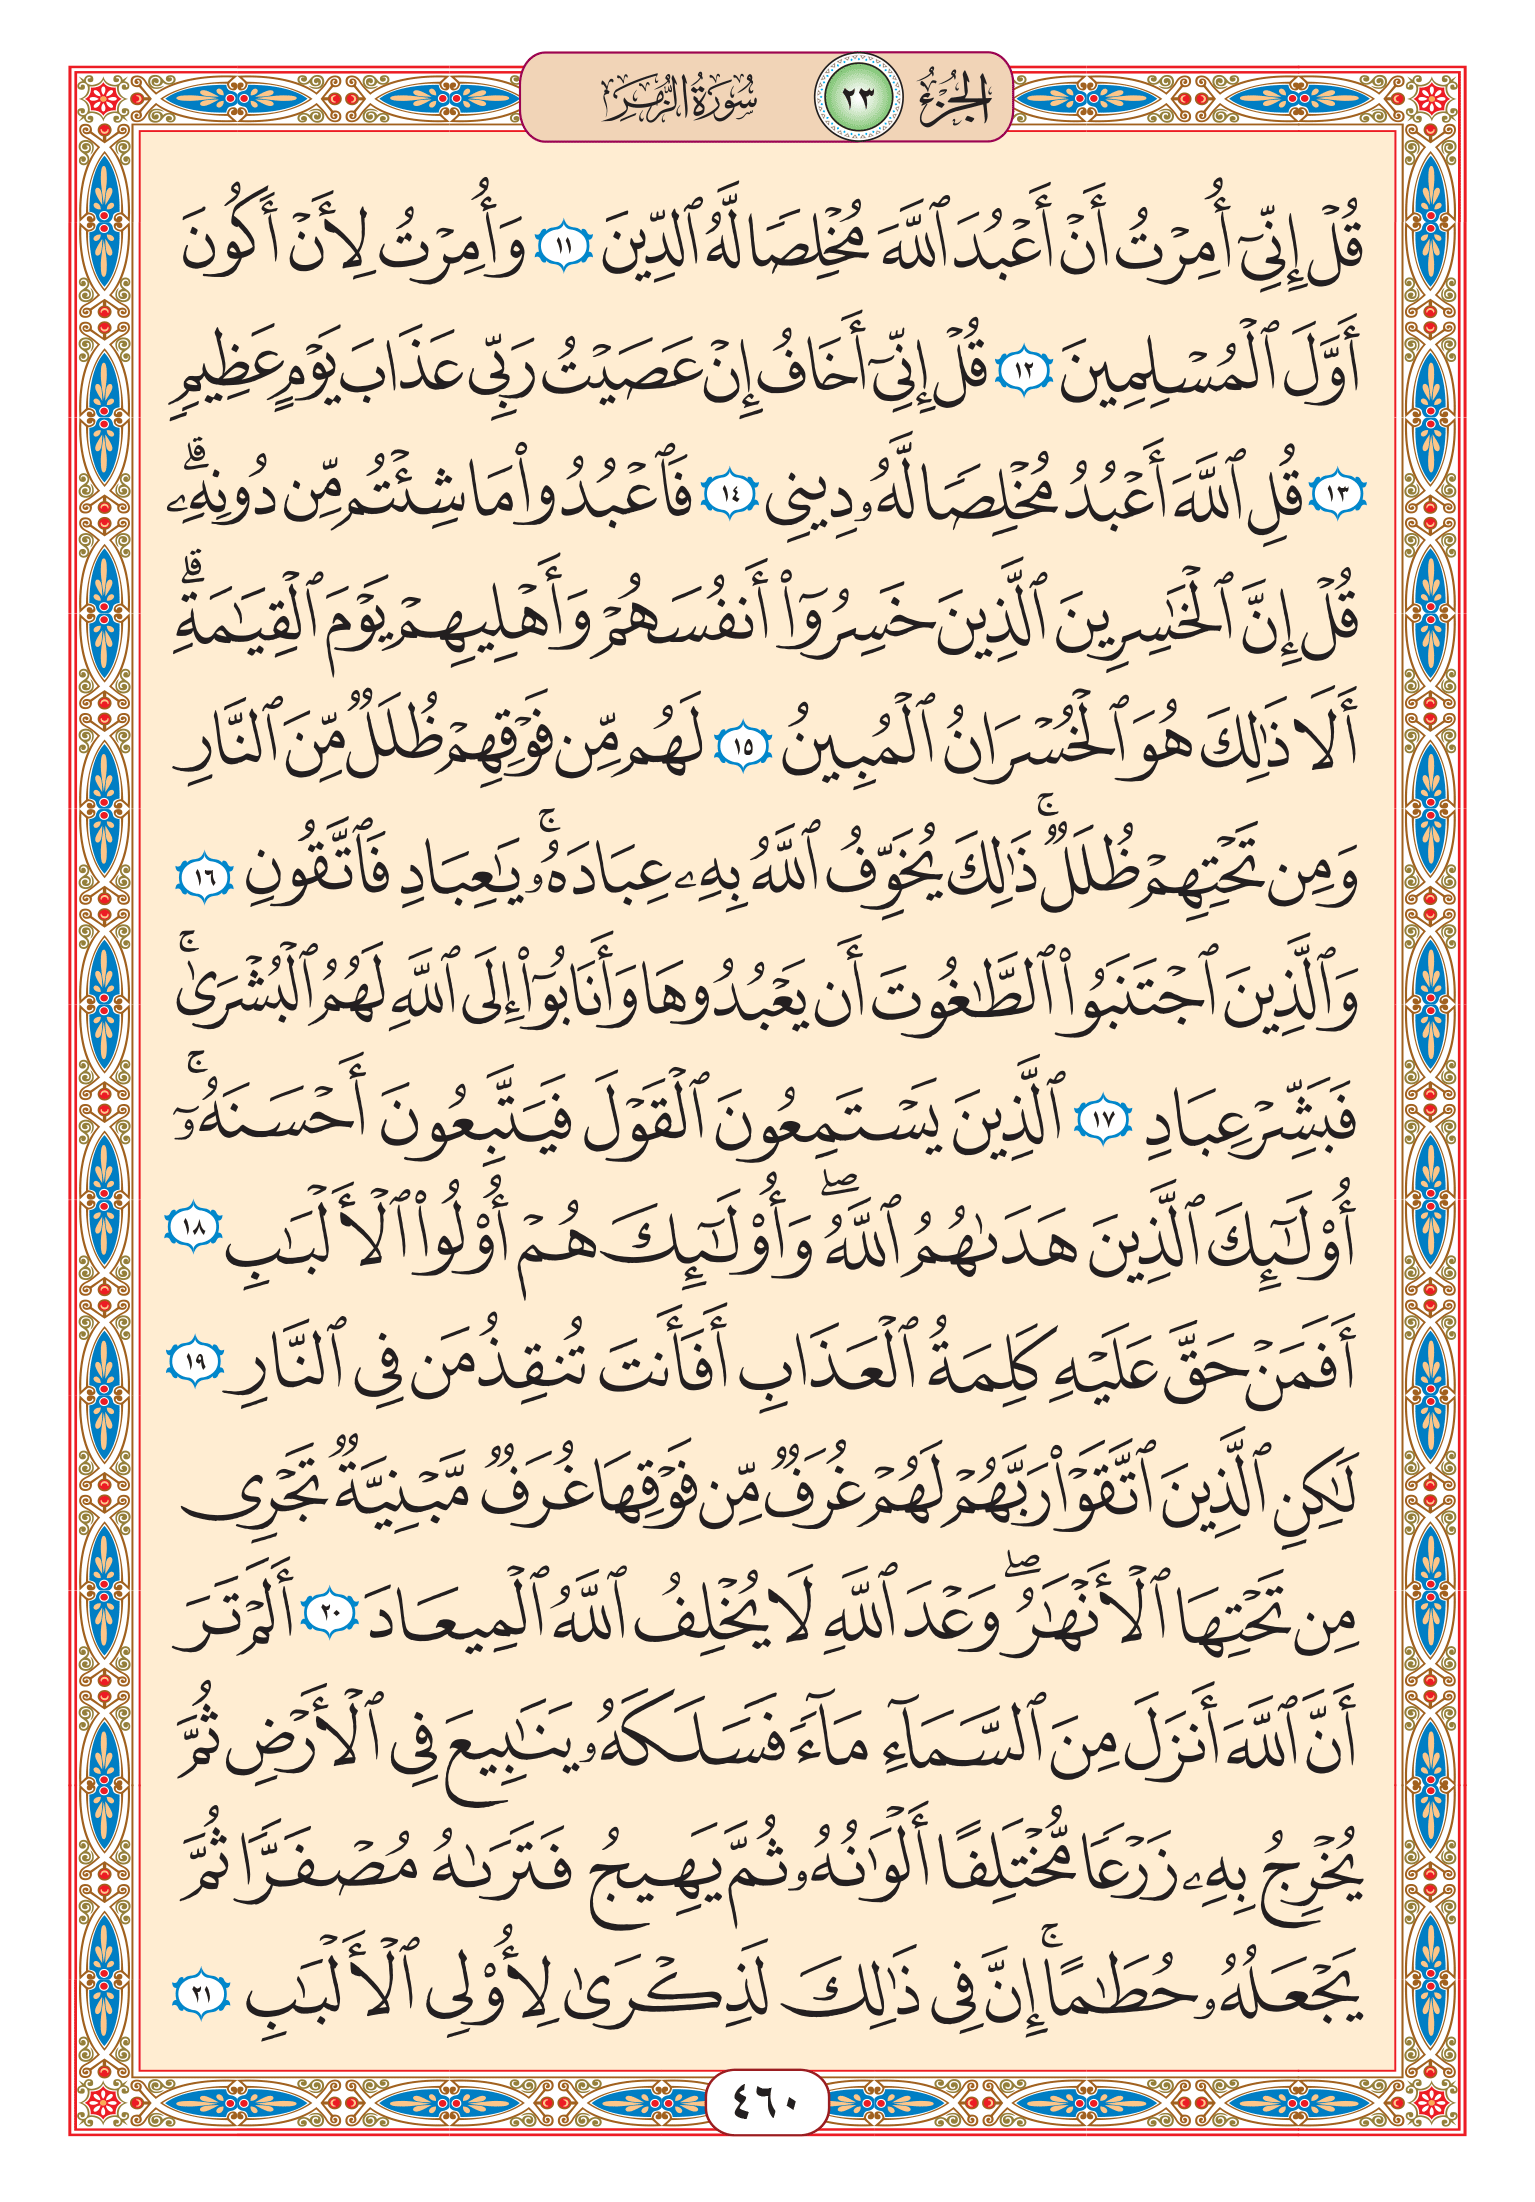 الجزء ٢٣ سورة الزمر
قُلْ إِنِّىٓ أُمِرْتُ أَنْ أَعْبُدَ ٱللَّهَ مُخْلِصًا لَّهُ ٱلدِّينَ ١١ وَأُمِرْتُ لِأَنْ أَكُونَ
أَوَّلَ ٱلْمُسْلِمِينَ ١٢ قُلْ إِنِّىٓ أَخَافُ إِنْ عَصَيْتُ رَبِّى عَذَابَ يَوْمٍ عَظِيمٍ
١٣ قُلِ ٱللَّهَ أَعْبُدُ مُخْلِصًا لَّهُۥ دِينِى ١٤ فَٱعْبُدُوا۟ مَا شِئْتُم مِّن دُونِهِۦ ۗ
قُلْ إِنَّ ٱلْخَٰسِرِينَ ٱلَّذِينَ خَسِرُوٓا۟ أَنفُسَهُمْ وَأَهْلِيهِمْ يَوْمَ ٱلْقِيَٰمَةِ ۗ
أَلَا ذَٰلِكَ هُوَ ٱلْخُسْرَانُ ٱلْمُبِينُ ١٥ لَهُم مِّن فَوْقِهِمْ ظُلَلٌ مِّنَ ٱلنَّارِ
وَمِن تَحْتِهِمْ ظُلَلٌ ۚ ذَٰلِكَ يُخَوِّفُ ٱللَّهُ بِهِۦ عِبَادَهُۥ ۚ يَٰعِبَادِ فَٱتَّقُونِ ١٦
وَٱلَّذِينَ ٱجْتَنَبُوا۟ ٱلطَّٰغُوتَ أَن يَعْبُدُوهَا وَأَنَابُوٓا۟ إِلَى ٱللَّهِ لَهُمُ ٱلْبُشْرَىٰ ۚ
فَبَشِّرْ عِبَادِ ١٧ ٱلَّذِينَ يَسْتَمِعُونَ ٱلْقَوْلَ فَيَتَّبِعُونَ أَحْسَنَهُۥٓ ۚ
أُو۟لَٰٓئِكَ ٱلَّذِينَ هَدَىٰهُمُ ٱللَّهُ ۖ وَأُو۟لَٰٓئِكَ هُمْ أُو۟لُوا۟ ٱلْأَلْبَٰبِ ١٨
أَفَمَنْ حَقَّ عَلَيْهِ كَلِمَةُ ٱلْعَذَابِ أَفَأَنتَ تُنقِذُ مَن فِى ٱلنَّارِ ١٩
لَٰكِنِ ٱلَّذِينَ ٱتَّقَوْا۟ رَبَّهُمْ لَهُمْ غُرَفٌ مِّن فَوْقِهَا غُرَفٌ مَّبْنِيَّةٌ تَجْرِى
مِن تَحْتِهَا ٱلْأَنْهَٰرُ ۖ وَعْدَ ٱللَّهِ لَا يُخْلِفُ ٱللَّهُ ٱلْمِيعَادَ ٢٠ أَلَمْ تَرَ
أَنَّ ٱللَّهَ أَنزَلَ مِنَ ٱلسَّمَآءِ مَآءً فَسَلَكَهُۥ يَنَٰبِيعَ فِى ٱلْأَرْضِ ثُمَّ
يُخْرِجُ بِهِۦ زَرْعًا مُّخْتَلِفًا أَلْوَٰنُهُۥ ثُمَّ يَهِيجُ فَتَرَىٰهُ مُصْفَرًّا ثُمَّ
يَجْعَلُهُۥ حُطَٰمًا ۚ إِنَّ فِى ذَٰلِكَ لَذِكْرَىٰ لِأُو۟لِى ٱلْأَلْبَٰبِ ٢١
٤٦٠